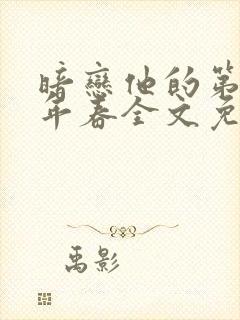 暗戀他的第
年春全文免
禹影